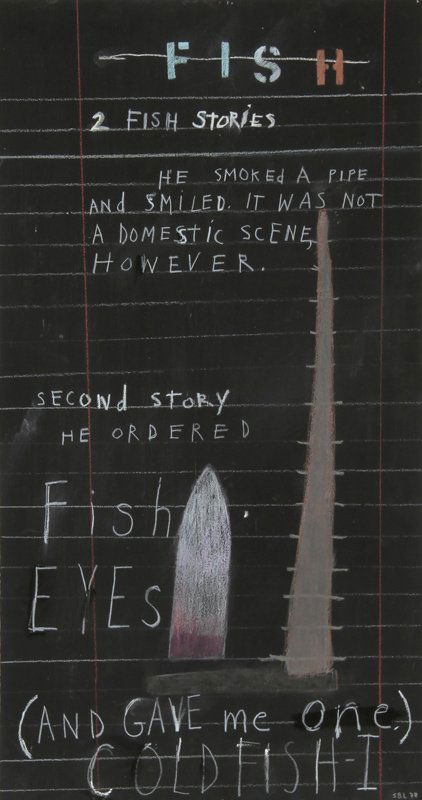 FISH
2 FISH STORIES
HE SMOKED A PIPE
ANd SMILED. IT WAS NOT
A DOMESTIC SCENE,
HOWEVER.
SECONd STORY
HE ORDERED
Fish
EYEs
(AND GAVE me one.)
COLDFISH-I
SBL 78